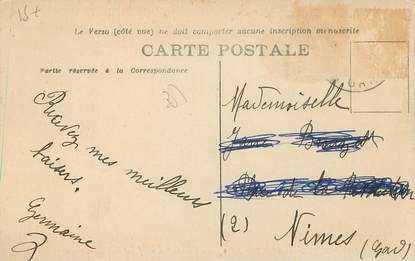 15+
Le Verso (côté vue) ne doit comporter aucune inscription manuscrite
CARTE POSTALE
Partie réservée à la Correspondance
Recevez mes meilleurs
baisers.
Germaine
Mademoiselle
(2) Nimes
(Gard)